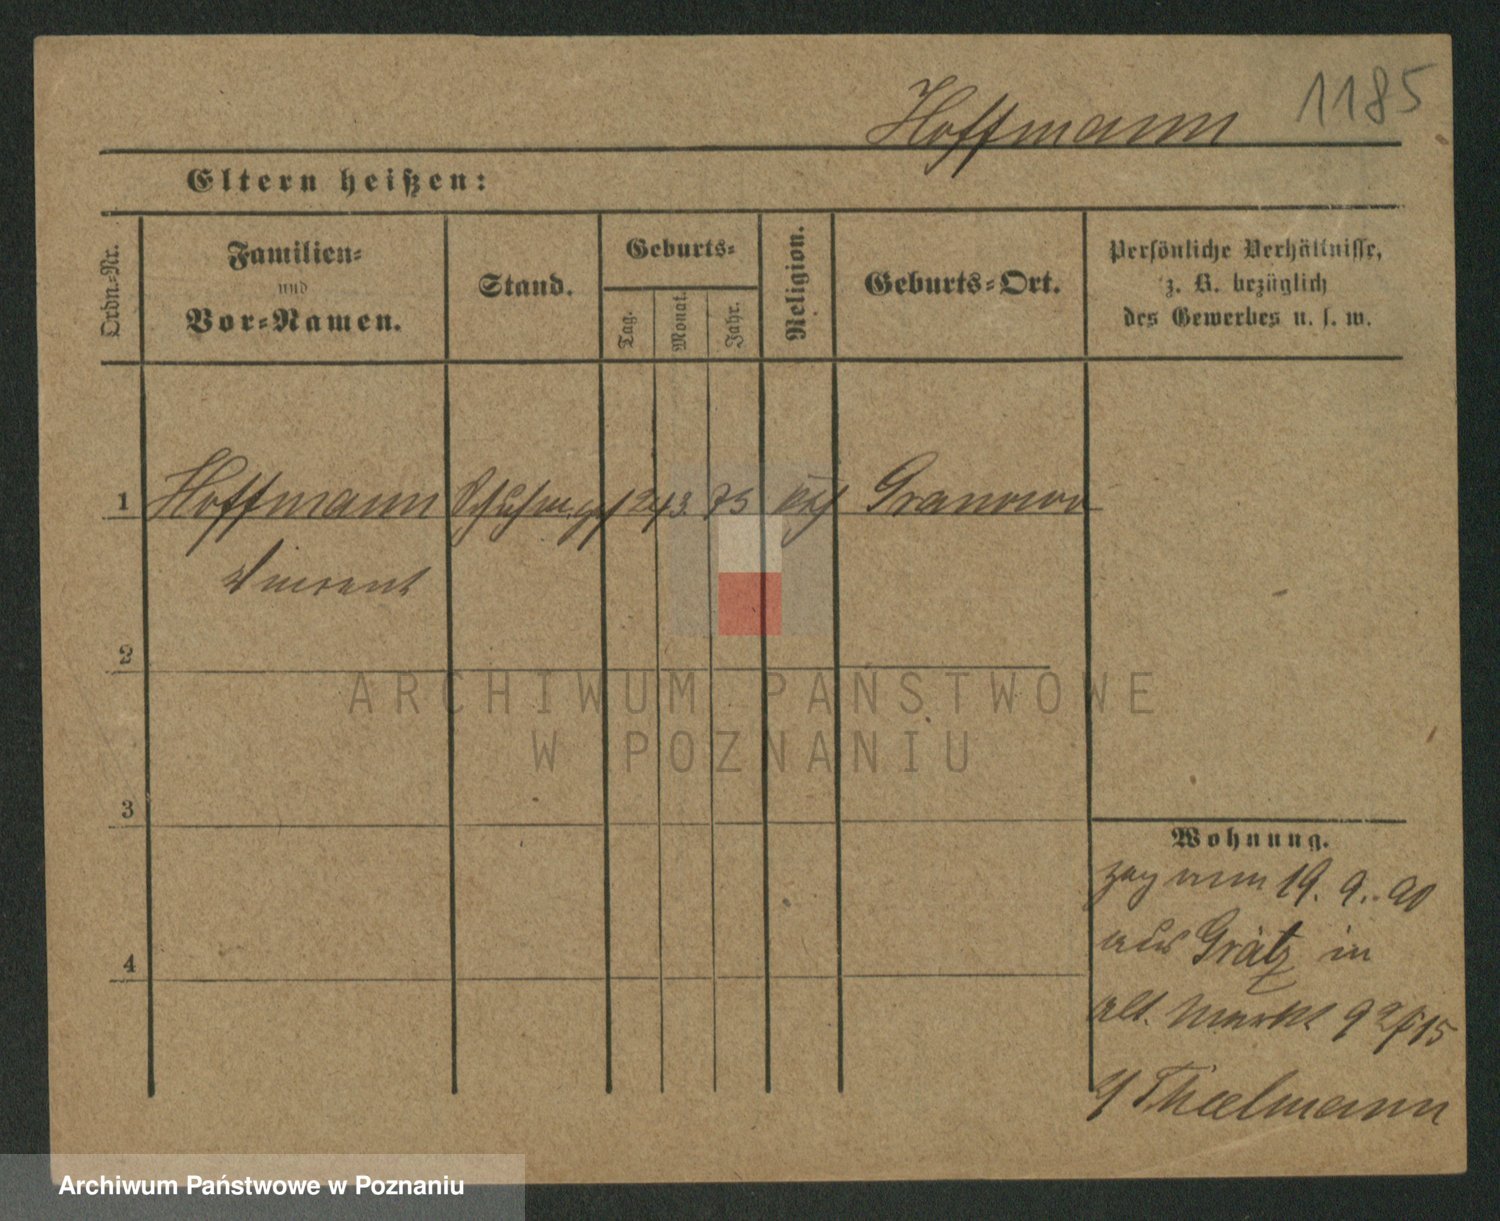 1185
Hoffmann
Eltern heißen:
Ordn.-Nr.
Familien-
und
Vor-Namen.
Stand.
Geburts-
Tag.
Monat.
Jahr.
Religion.
Geburts-Ort.
Persönliche Verhältnisse,
z. B. bezüglich
des Gewerbes u. s. w.
1 Hoffmann Schuhm. 24 3 75 kth Granowo
Vincent
2
3
4
Wohnung.
zog 19. 9. 90
aus Grätz in
alt. Markt 92/15
Thielmann
ARCHIWUM PAŃSTWOWE
W POZNANIU
Archiwum Państwowe w Poznaniu